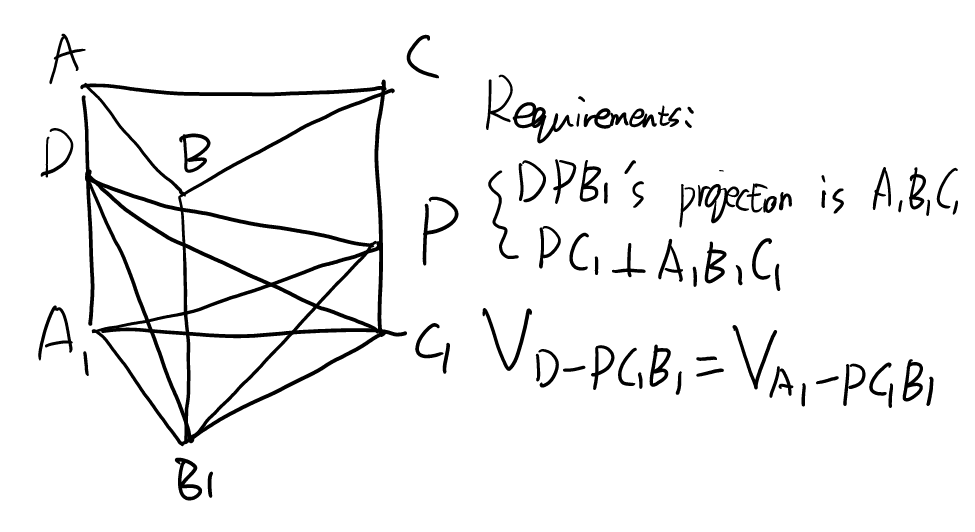 A
C
D
B
P
A₁
C₁
B₁
Requirements:
{ DPB₁'s projection is A₁B₁C₁
PC₁ ⊥ A₁B₁C₁
V_{D-PC₁B₁} = V_{A₁-PC₁B₁}